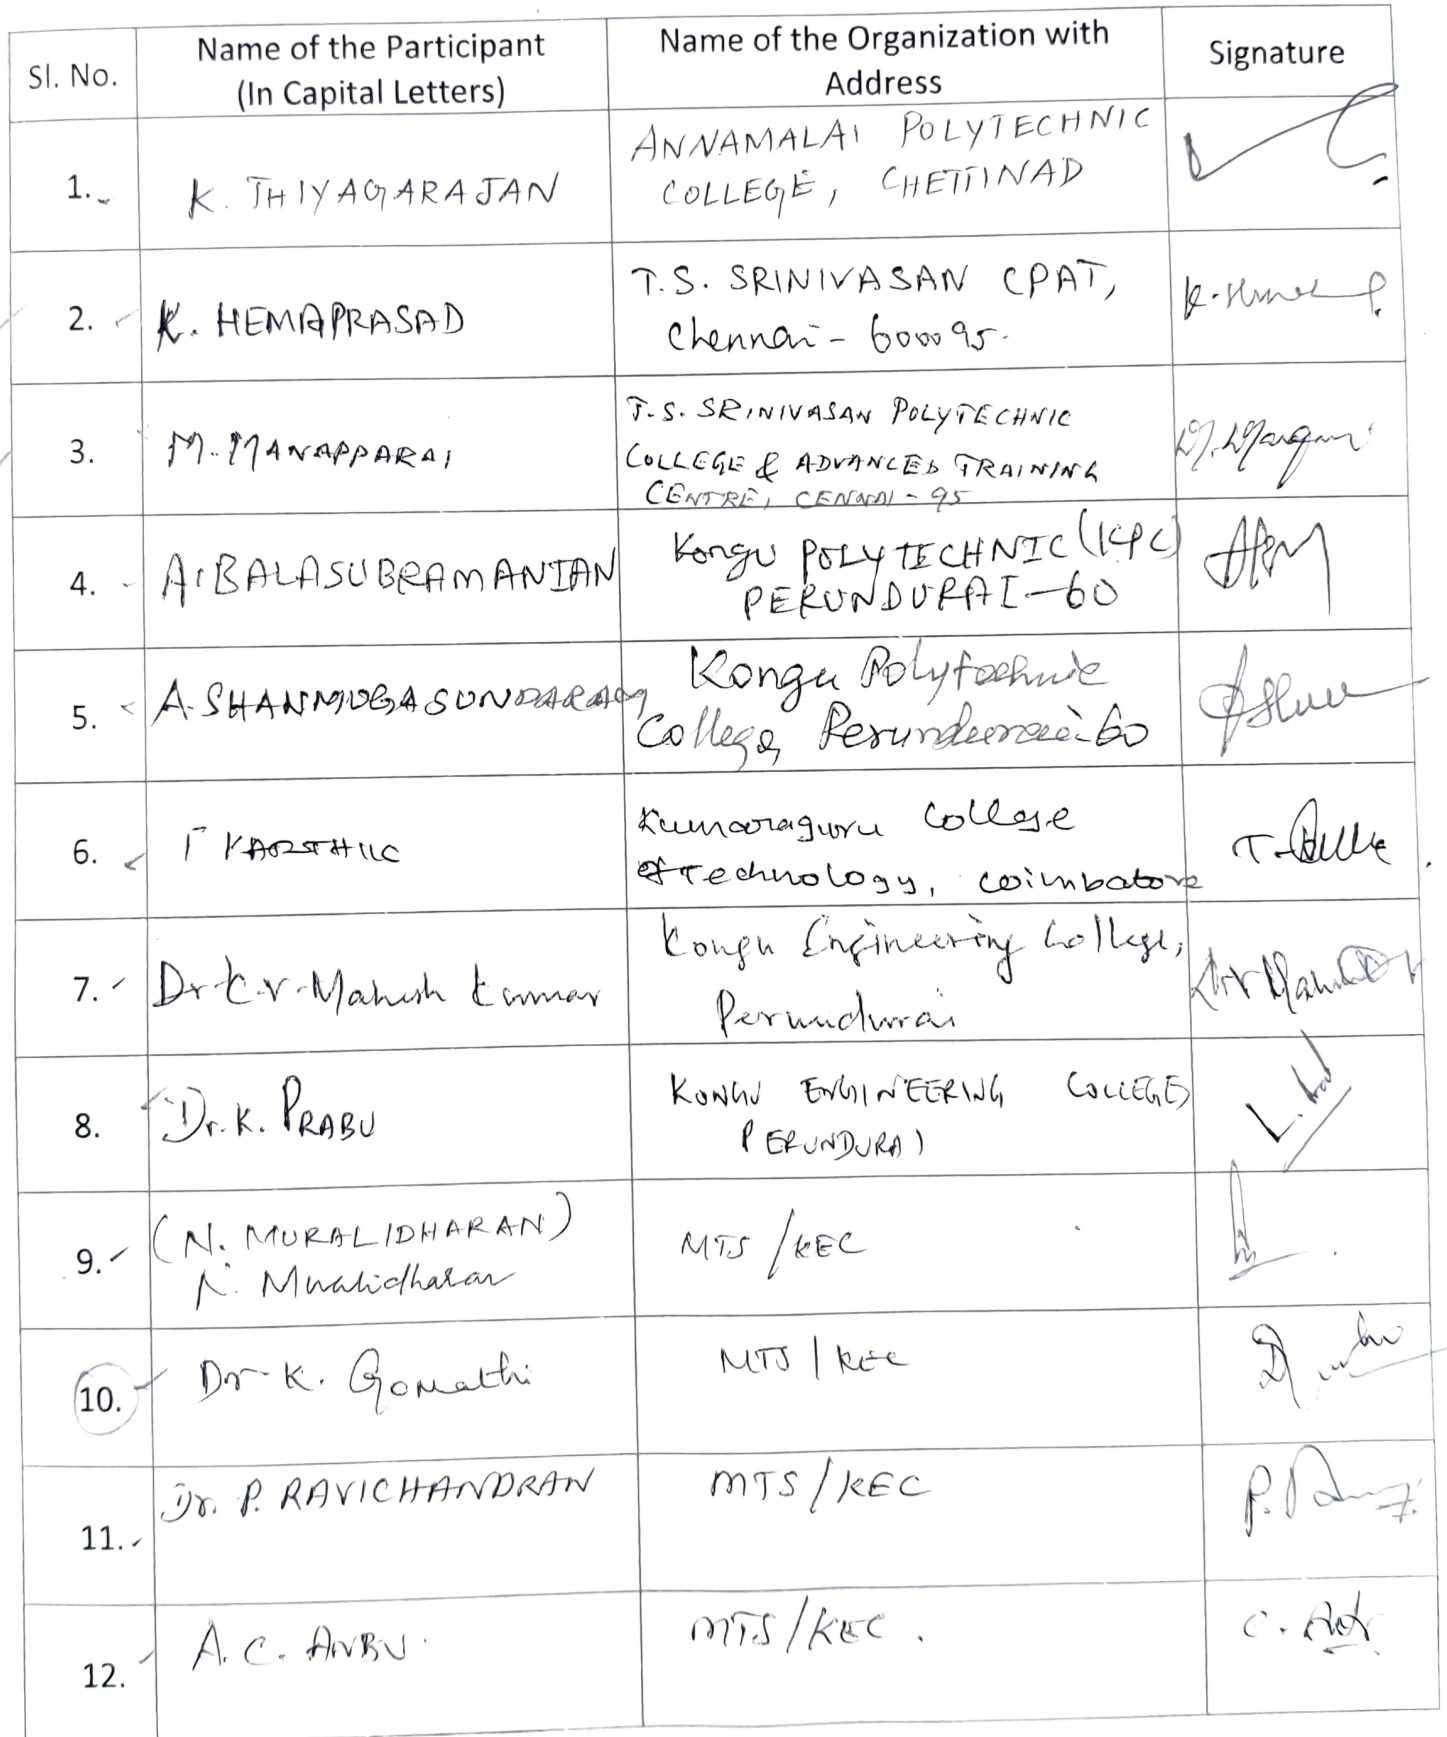 Sl. No.
Name of the Participant
(In Capital Letters)
Name of the Organization with
Address
Signature
1.
K. THIYAGARAJAN
ANNAMALAI POLYTECHNIC
COLLEGE, CHETTINAD
2.
K. HEMAPRASAD
T.S. SRINIVASAN CPAT,
Chennai - 600095.
3.
M. MANAPPARAI
T.S. SRINIVASAN POLYTECHNIC
COLLEGE & ADVANCED TRAINING
CENTRE, CENNAI - 95
4.
A. BALASUBRAMANIAN
Kongu POLYTECHNIC (KPC)
PERUNDURAI - 60
5.
A. SHANMUGASUNDARAM
Kongu Polytechnic
College, Perundurai - 60
6.
T KARTHIC
Kumaraguru College
of Technology, Coimbatore
7.
Dr K.V. Mahesh Kumar
Kongu Engineering College,
Perundurai
8.
Dr. K. PRABU
KONGU ENGINEERING COLLEGE,
PERUNDURAI
9.
(N. MURALIDHARAN)
N. Muralidharan
MTS / KEC
10.
Dr. K. Gomathi
MTS / KEC
11.
Dr. P. RAVICHANDRAN
MTS / KEC
12.
A. C. ANBU.
MTS / KEC.